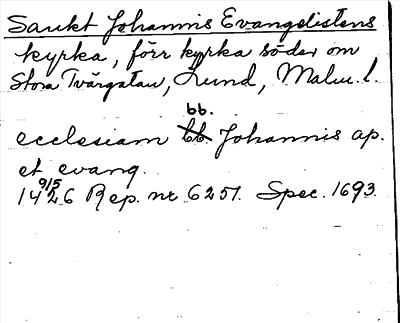 Sankt Johannis Evangelistens
kyrka, förr kyrka söder om
Stora Tvärgatan, Lund, Malm. l.
bb.
ecclesiam bb. Johannis ap.
et evang.
14 9/5 26 Rep. nr 6251. Spec. 1693.